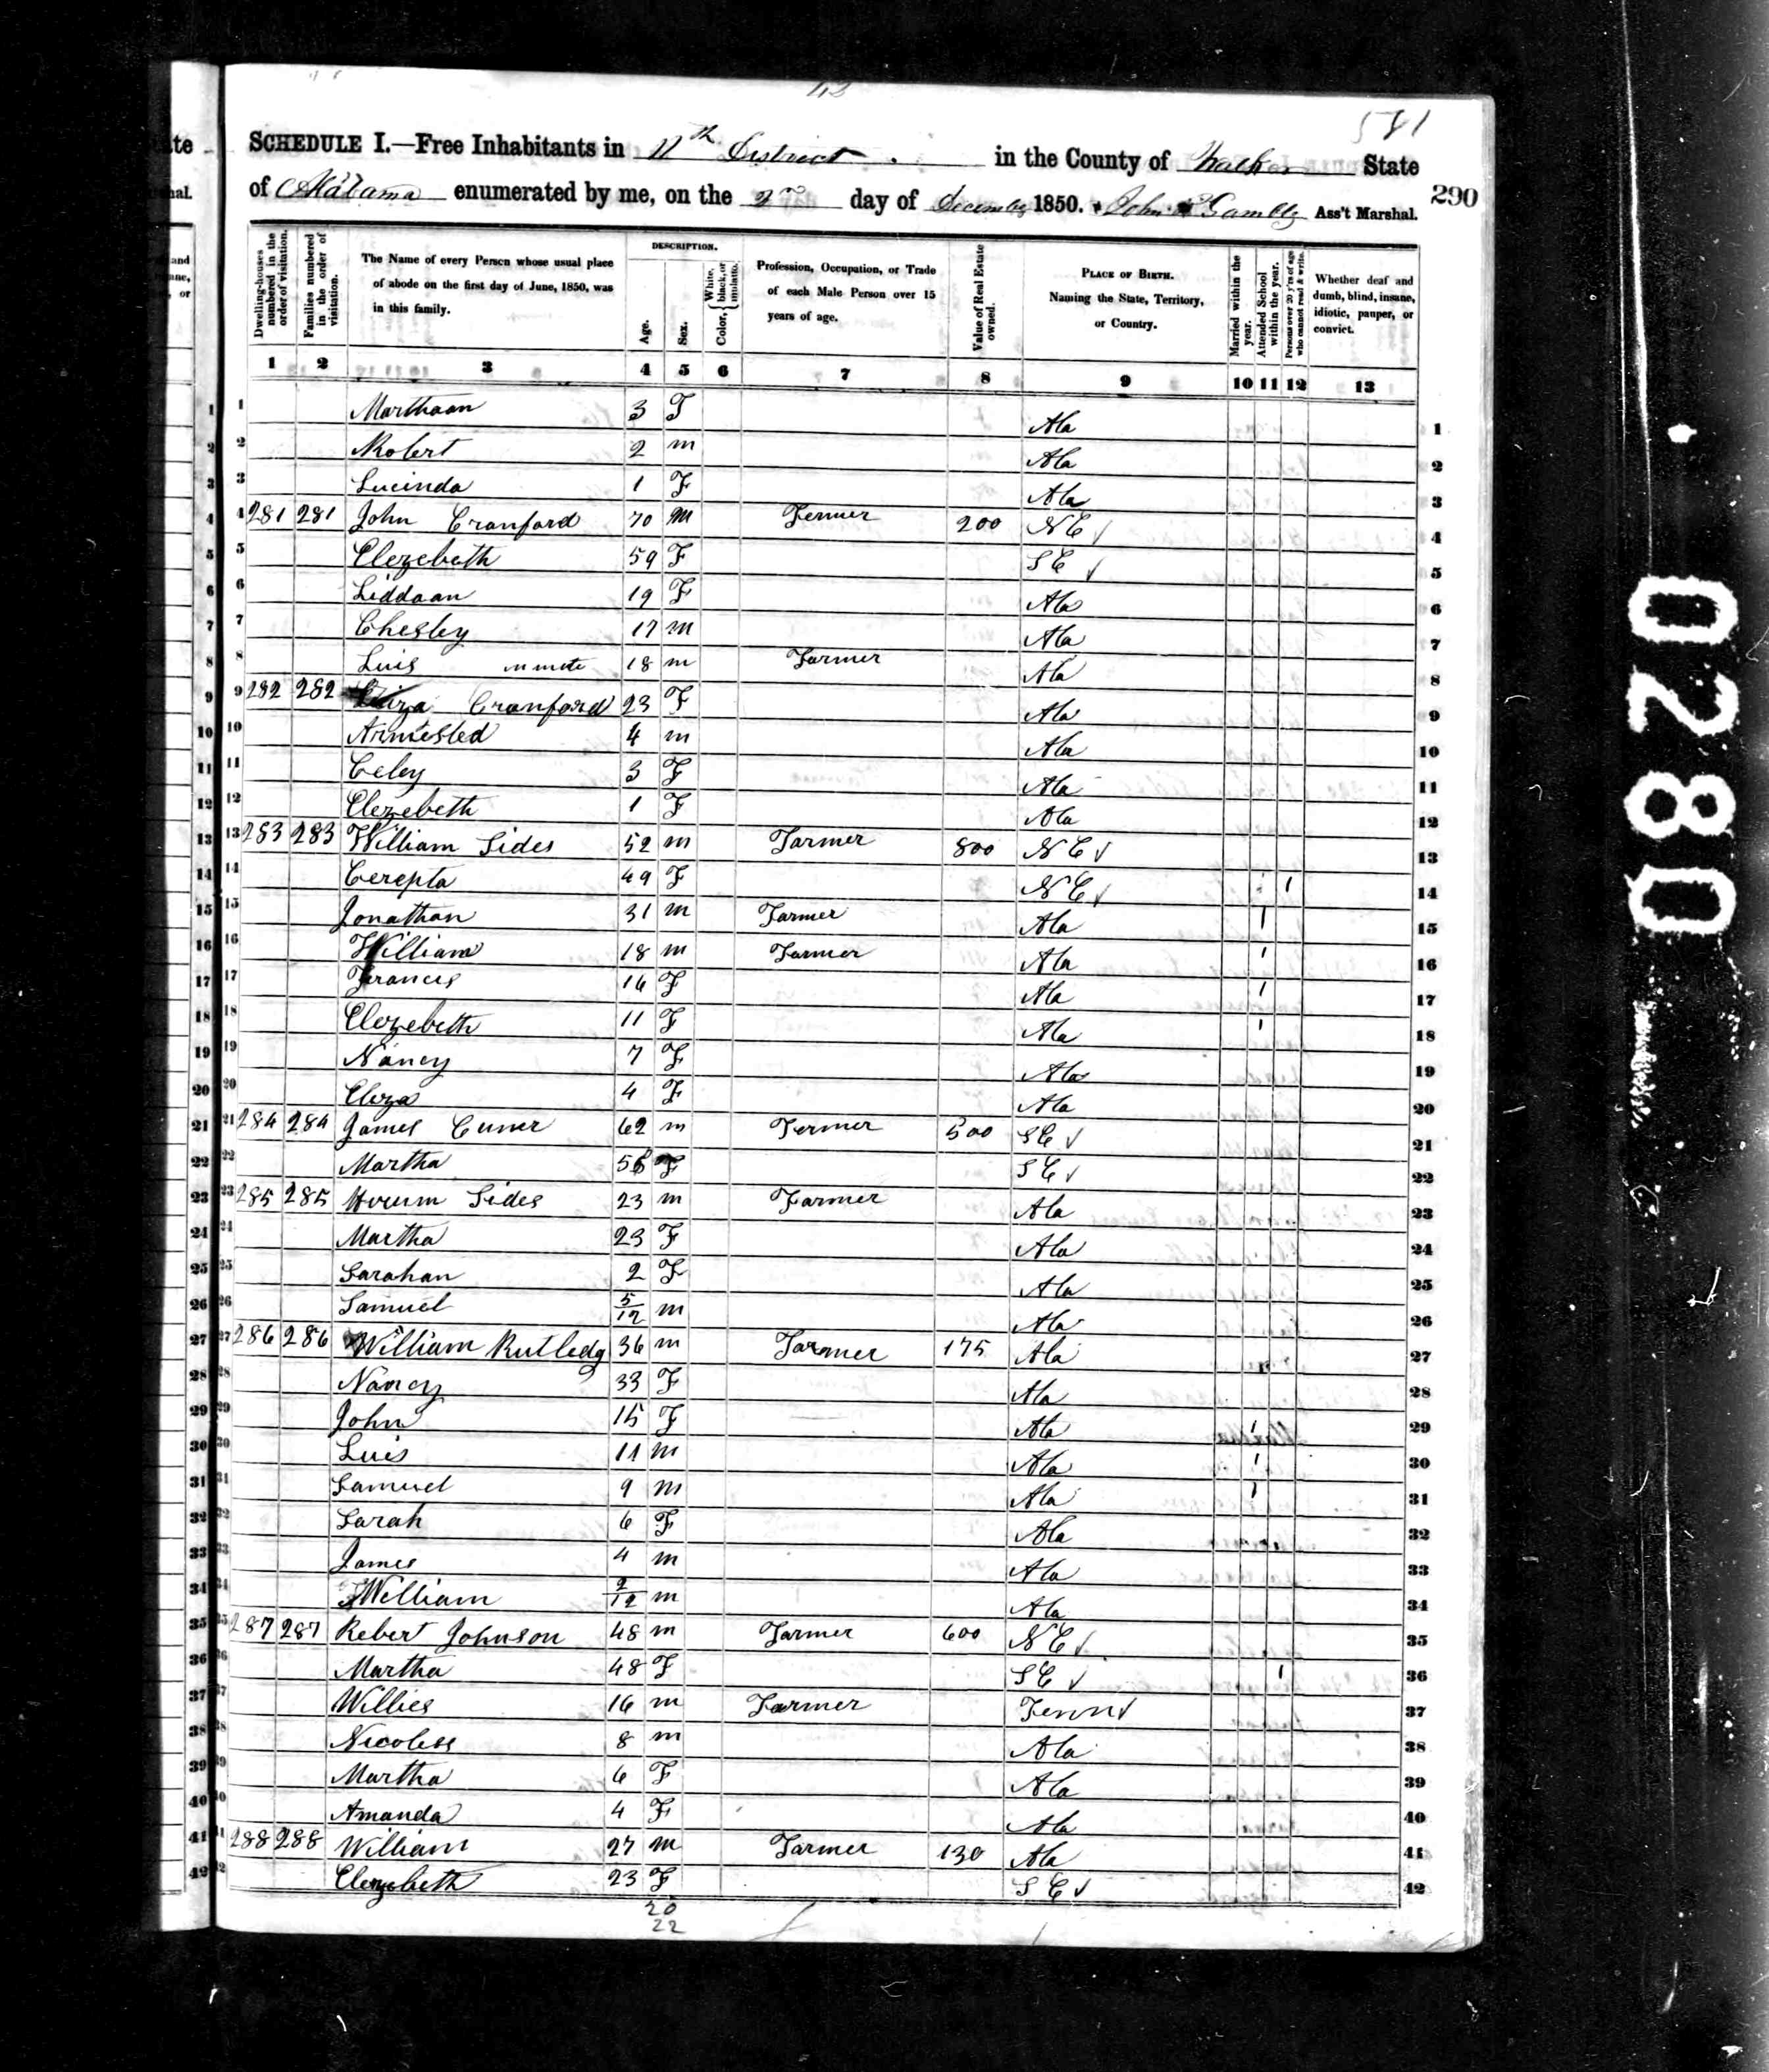 581
SCHEDULE I.—Free Inhabitants in 11th District in the County of Walker State
of Alabama enumerated by me, on the day of December 1850. John Gambly Ass't Marshal. 290
Dwelling-houses numbered in the order of visitation.
Families numbered in the order of visitation.
The Name of every Person whose usual place of abode on the first day of June, 1850, was in this family.
DESCRIPTION.
Age.
Sex.
Color, { White, black, or mulatto.
Profession, Occupation, or Trade of each Male Person over 15 years of age.
Value of Real Estate owned.
PLACE OF BIRTH. Naming the State, Territory, or Country.
Married within the year.
Attended School within the year.
Persons over 20 y'rs of age who cannot read & write.
Whether deaf and dumb, blind, insane, idiotic, pauper, or convict.
1 2 3 4 5 6 7 8 9 10 11 12 13
1 Marthaan 3 F Ala 1
2 Robert 2 m Ala 2
3 Lucinda 1 F Ala 3
4 281 281 John Cranford 70 m Fermer 200 N C √ 4
5 Elezebeth 59 F S C √ 5
6 Liddaan 19 F Ala 6
7 Chesley 17 m Ala 7
8 Luis 18 m Farmer Ala 8
9 282 282 Eliza Cranford 23 F Ala 9
10 Armested 4 m Ala 10
11 Celey 3 F Ala 11
12 Elezebeth 1 F Ala 12
13 283 283 William Sides 52 m Farmer 800 N C √ 13
14 Cerepta 49 F N C √ 1 14
15 Jonathan 31 m Farmer Ala 1 15
16 William 18 m Farmer Ala 1 16
17 Francis 14 F Ala 1 17
18 Elezebeth 11 F Ala 1 18
19 Nancy 7 F Ala 19
20 Eleza 4 F Ala 20
21 284 284 James 62 m Fermer 500 S C √ 21
22 Martha F S C √ 22
23 285 285 Sides 23 m Farmer Ala 23
24 Martha 23 F Ala 24
25 Sarahan 2 F Ala 25
26 Samuel 5/12 m Ala 26
27 286 286 William Rutledg 36 m Farmer 175 Ala 27
28 Nancy 33 F Ala 28
29 John 15 F Ala 1 29
30 Luis 11 m Ala 1 30
31 Samuel 9 m Ala 1 31
32 Sarah 6 F Ala 32
33 James 4 m Ala 33
34 William 2/12 m Ala 34
35 287 287 Rebert Johnson 48 m Farmer 600 N C √ 35
36 Martha 48 F S C √ 1 36
37 Willies 16 m Farmer Tenn √ 37
38 Nicoless 8 m Ala 38
39 Martha 6 F Ala 39
40 Amanda 4 F Ala 40
41 288 288 William 27 m Farmer 130 Ala 41
42 Elezebeth 23 F S C √ 42
20
22
0280